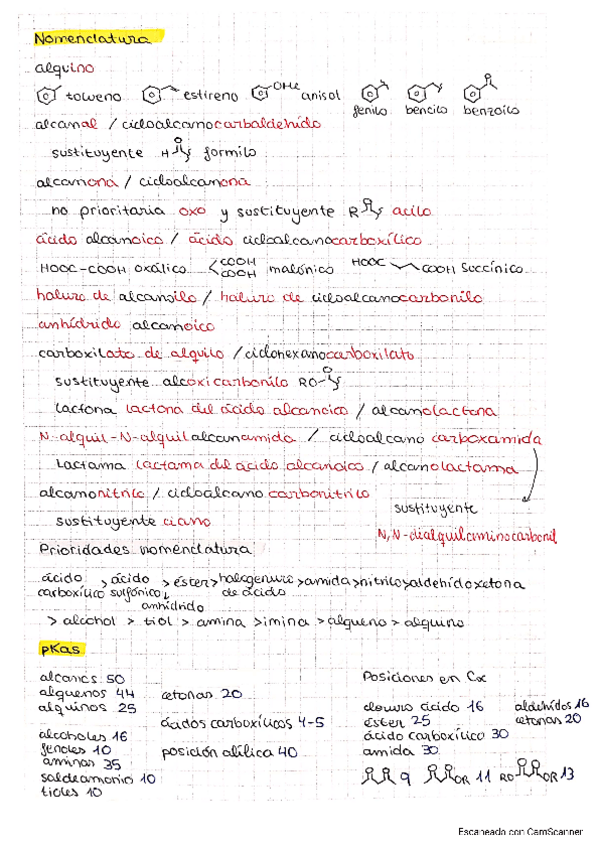 Nomenclatura
alquino
tolueno estireno OMe anisol fenilo bencilo benzoilo
alcanal / cicloalcanocarbaldehído
sustituyente H O formilo
alcanona / cicloalcanona
no prioritaria oxo y sustituyente R O acilo
ácido alcanoico / ácido cicloalcanocarboxílico
HOOC-COOH oxálico COOH COOH malónico HOOC COOH succínico
haluro de alcanoilo / haluro de cicloalcanocarbonilo
anhídrido alcanoico
carboxilato de alquilo / ciclohexanocarboxilato
sustituyente alcoxicarbonilo RO O
lactona lactona del ácido alcanoico / alcanolactona
N-alquil-N-alquilalcanamida / cicloalcano carboxamida
Lactama lactama del ácido alcanoico / alcanolactama
alcanonitrilo / cicloalcano carbonitrilo
sustituyente
sustituyente ciano
N,N-dialquilaminocarbonil
Prioridades nomenclatura
ácido carboxílico > ácido sulfónico > éster > halogenuro de ácido > amida > nitrilo > aldehído > cetona
anhídrido
> alcohol > tiol > amina > imina > alqueno > alquino
pKas
alcanos 50
alquenos 44 cetonas 20
alquinos 25
ácidos carboxílicos 4-5
alcoholes 16
fenoles 10 posición alílica 40
aminas 35
sal de amonio 10
tioles 10
Posiciones en Cα
cloruro ácido 16 aldehídos 16
éster 25 cetonas 20
ácido carboxílico 30
amida 30
9 OR 11 RO OR 13
Escaneado con CamScanner